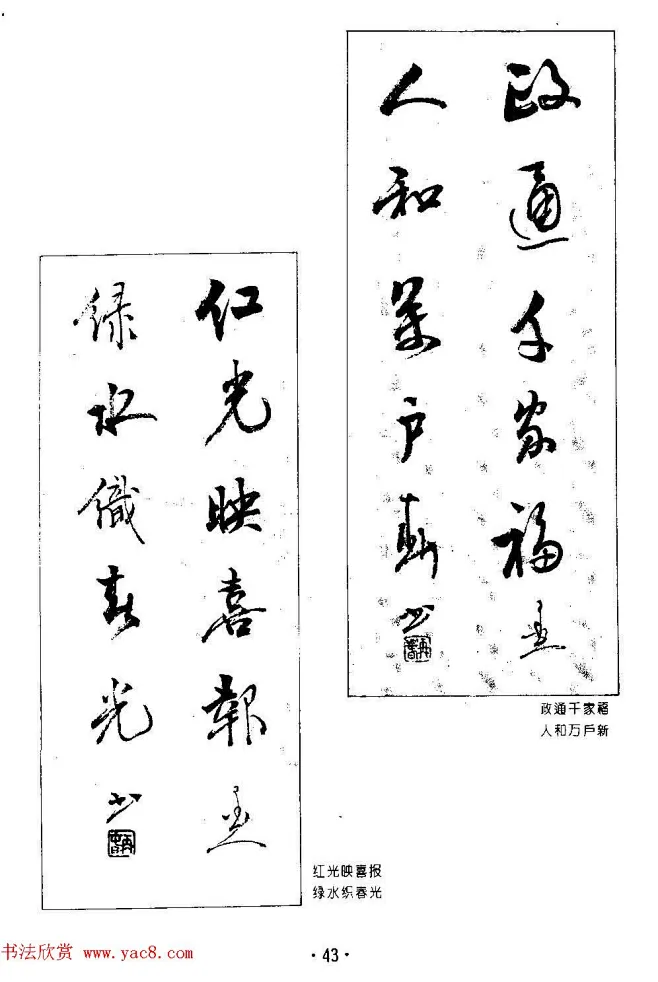 政通千家福
人和萬户新
政通千家福
人和万户新
红光映喜報
绿水織春光
红光映喜报
绿水织春光
书法欣赏 www.yac8.com
·43·